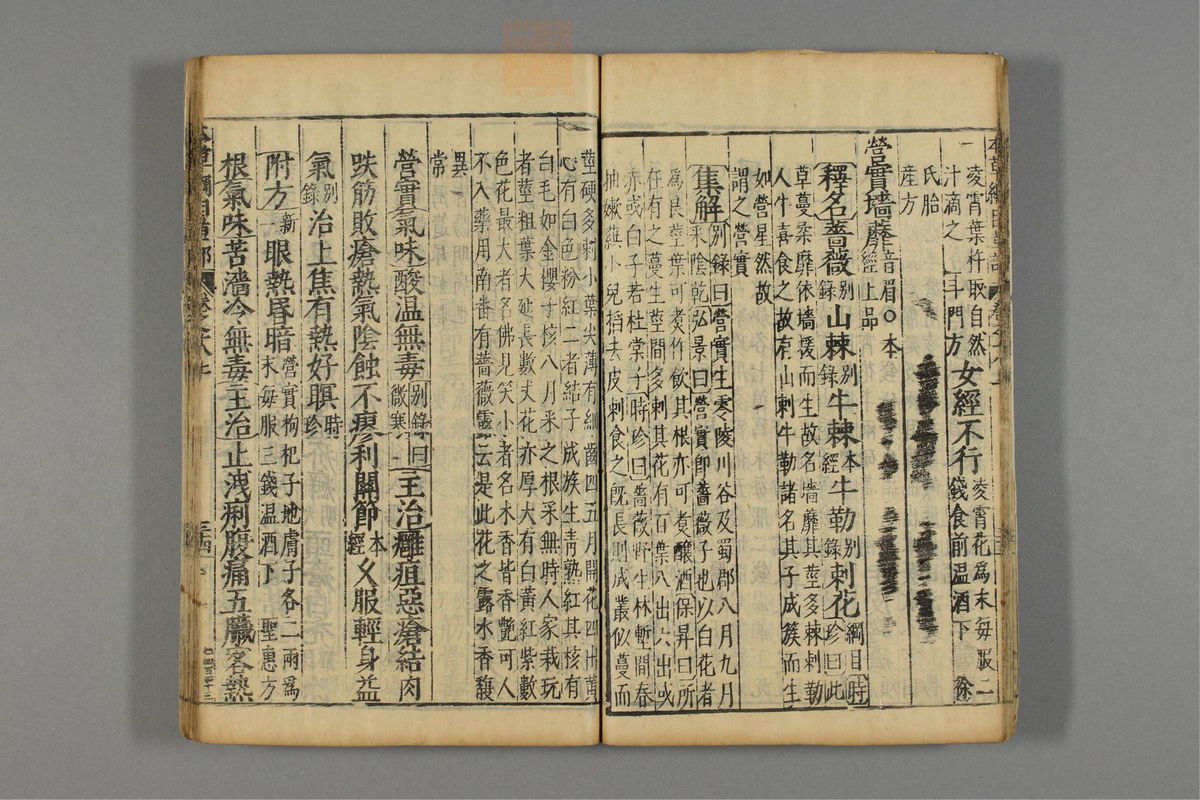 凌霄葉杵取自然
汁滴之 斗門方
女經不行
凌霄花為末每服二
錢食前温酒下 徐
氏胎
産方
營實墻蘼
音眉○本
經上品
釋名薔薇
别
錄
山棘
别
錄
牛棘
本
經
牛勒
别
錄
刺花
綱目
時
珍曰此
草蔓柔靡依墻援而生故名墻蘼其莖多棘刺勒
人牛喜食之故有山刺牛勒諸名其子成簇而生
如營星然故
謂之營實
集解
别錄曰營實生零陵川谷及蜀郡八月九月
采陰乾弘景曰營實即薔薇子也以白花者
為良莖葉可煑作飲其根亦可煑釀酒保昇曰所
在有之蔓生莖間多刺其花有百葉八出六出或
赤或白子若杜棠子時珍曰薔薇野生林塹間春
抽嫩蕻小兒掐去皮刺食之既長則成叢似蔓而
莖硬多刺小葉尖薄有細齒四五月開花四出黄
心有白色粉紅二者結子成簇生青熟紅其核有
白毛如金櫻子核八月采之根采無時人家栽玩
者莖粗葉大延長數丈花亦厚大有白黄紅紫數
色花最大者名佛見笑小者名木香皆香艷可人
不入藥用南番有薔薇露云是此花之露水香馥
異
常
營實氣味酸温無毒
别錄曰
微寒
主治癰疽惡瘡結肉
跌筋敗瘡熱氣陰蝕不瘳利關節
本
經
久服輕身益
氣
别
錄
治上焦有熱好瞑
時
珍
附方
新
一
眼熱昏暗
營實枸杞子地膚子各二兩為
末毎服三錢温酒下 聖惠方
根氣味苦濇冷無毒主治止洩痢腹痛五臟客熱